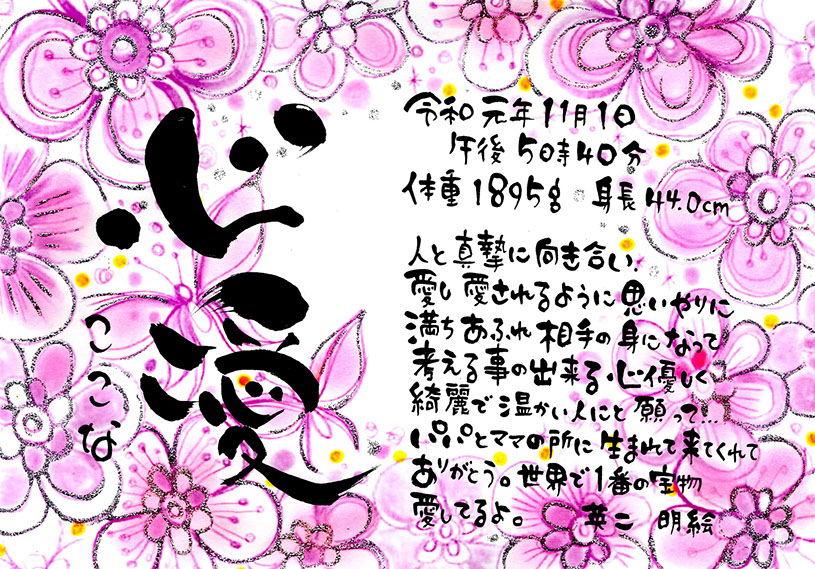 心愛
ここな
令和元年11月1日
午後5時40分
体重1895g 身長44.0cm
人と真摯に向き合い、
愛し愛されるように思いやりに
満ちあふれ相手の身になって
考える事の出来る・心優しく
綺麗で温かい人にと願って!!..
パパとママの所に生まれて来てくれて
ありがとう。世界で1番の宝物
愛してるよ。 英二 明絵